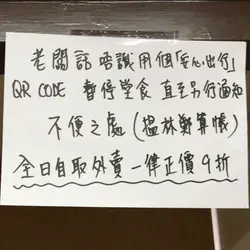 老闆話唔識用個「安心出行」
QR CODE 暫停堂食 直至另行通知
不便之處(搵林鄭算帳)
全日自取外賣 一律正價9折